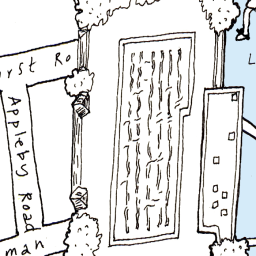 yrst Ro
Appleby Road
man
L